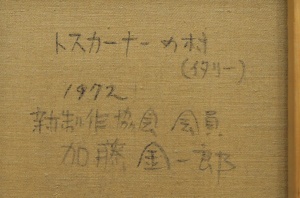 トスカーナーの村
(イタリー)
1972
新制作協会 会員
加藤 金一郎